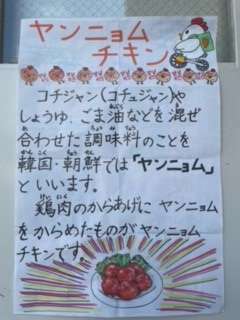 ヤンニョム
チキン
コチジャン(コチュジャン)や
しょうゆ、ごま油などを混ぜ
合わせた調味料のことを
韓国・朝鮮では「ヤンニョム」
といいます。
鶏肉のからあげに ヤンニョム
をからめたものがヤンニョム
チキンです。